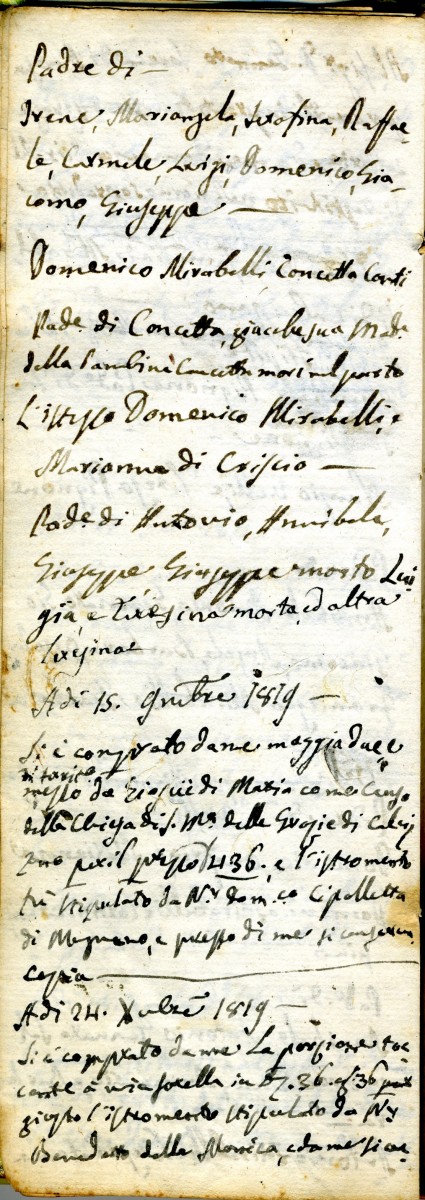 Padre di —
Irene, Mariangela, Serafina, Raffae-
le, Carmele, Luigi, Domenico, Gia-
como, Giuseppe —
Domenico Mirabelli, Concetta Conti
Pade. di Concetta, giacche sua Made.
della bambina Concetta morì nel parto
L'istesso Domenico Mirabelli, e
Marianna di Criscio —
Pade. di Antonio, Annibale,
Giuseppe, Giuseppe morto Lui
gia, e morta, ed altra
A di 15. 9mbre 1819 —
Si è comprato da me moggia due e
mezzo da Giosuè di Maria come Censo
della Chiesa di S. Ma. delle Grazie di Calvi
zano per il prezzo 436. e l'istromento
fù stipulato da Nr. Dom.co Cipolletta
di Mugnano, e presso di me si conserva
copia —
A di 24. Xbre 1819 —
Si è comprato da me la porzione toc
cante a mia sorella in 36. 36 per
l'istromento stipulato da Nr.
Benedetto della Monica, e da me si